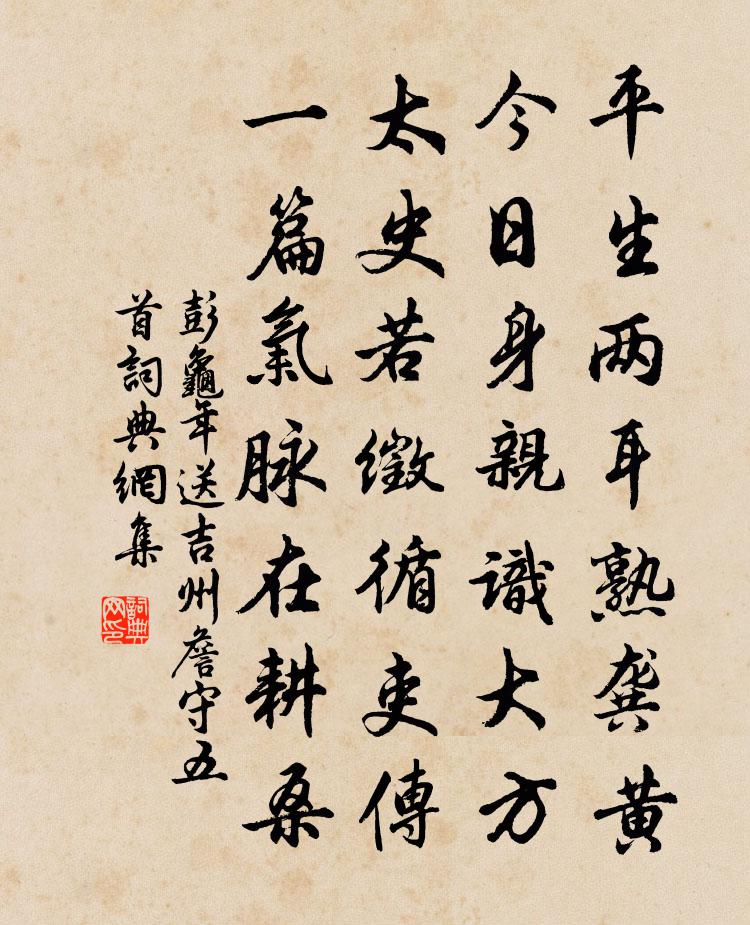 平生两耳熟龚黄
今日身親識大方
太史若徵循吏傳
一篇氣脉在耕桑
彭龜年送吉州詹守五
首詞典網集
詞典
网印